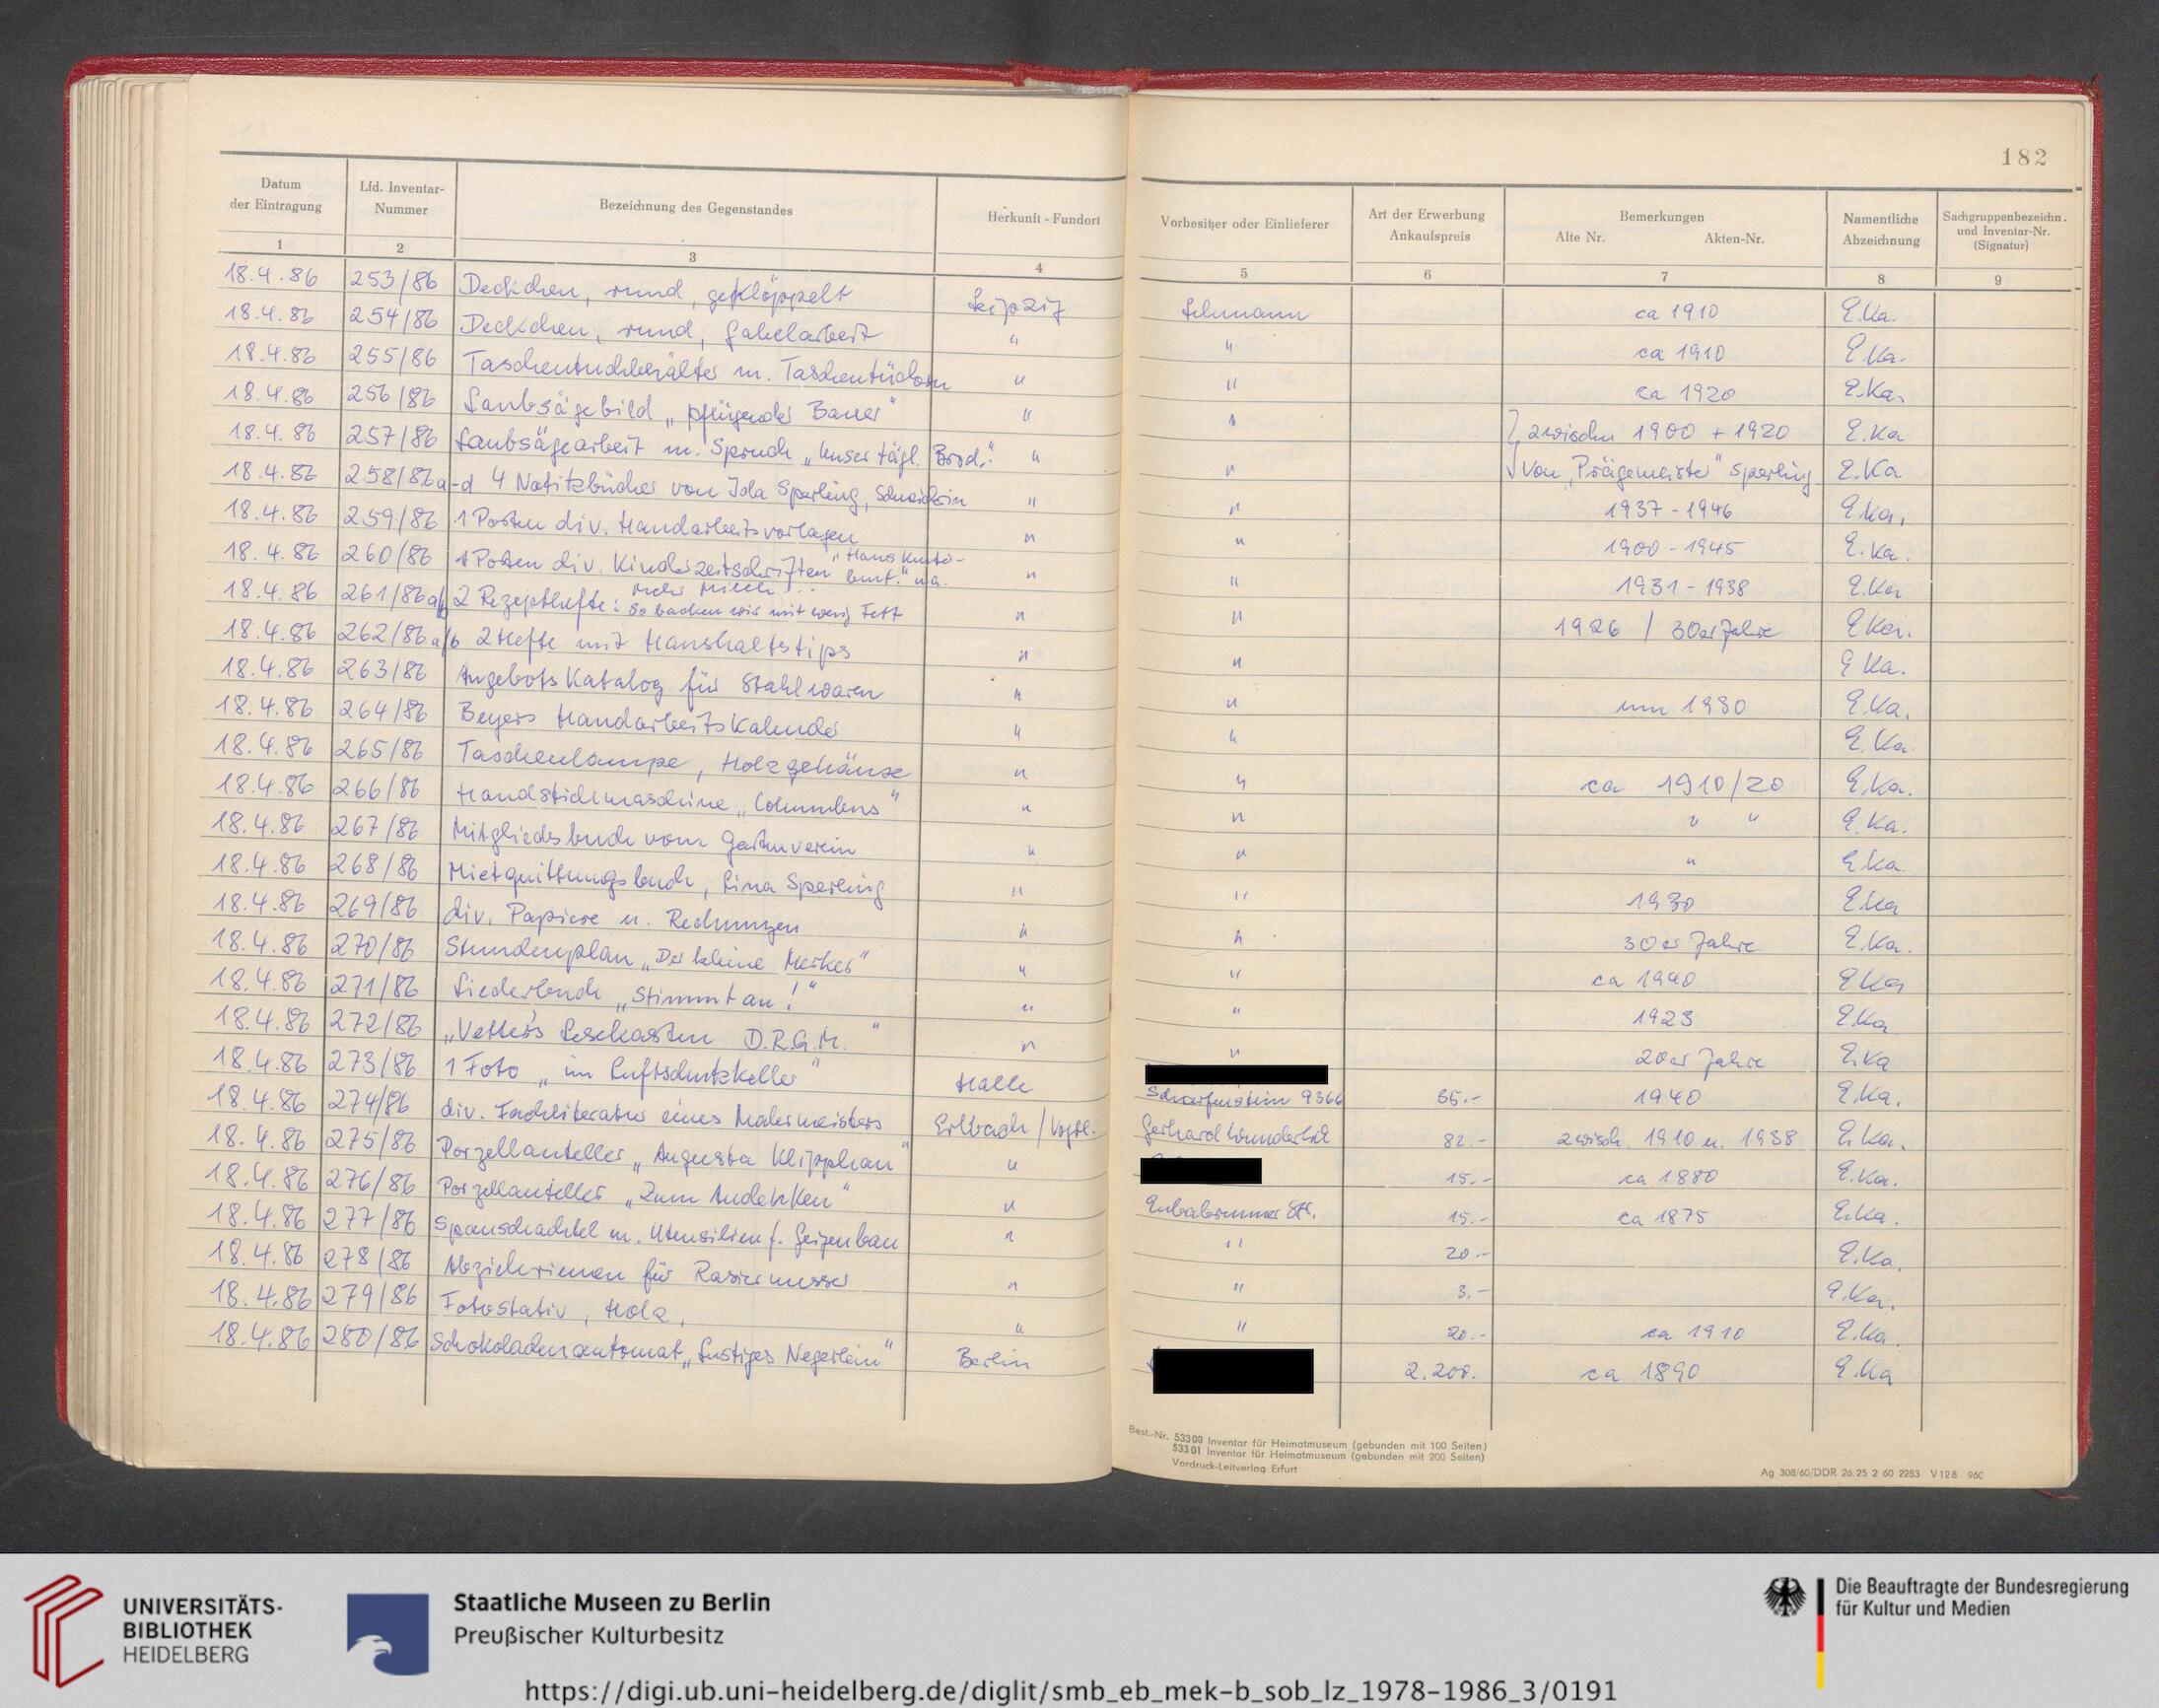 182
Datum der Eintragung | Lfd. Inventar-Nummer | Bezeichnung des Gegenstandes | Herkunft - Fundort | Vorbesitzer oder Einlieferer | Art der Erwerbung Ankaufspreis | Bemerkungen Alte Nr. Akten-Nr. | Namentliche Abzeichnung | Sachgruppenbezeichn. und Inventar-Nr. (Signatur)
1 | 2 | 3 | 4 | 5 | 6 | 7 | 8 | 9
18.4.86 | 253/86 | Deckchen, rund, geklöppelt | Leipzig | Lehmann | ca 1910 | E.Ka.
18.4.86 | 254/86 | Deckchen, rund, Gabelarbeit | " | " | ca 1910 | E.Ka.
18.4.86 | 255/86 | Taschentuchbehälter m. Taschentüchern | " | " | ca 1920 | E.Ka.
18.4.86 | 256/86 | Laubsägebild „pflügender Bauer" | " | " | zwischen 1900 + 1920 | E.Ka
18.4.86 | 257/86 | Laubsägearbeit m. Spruch „Unser tägl. Brod." | " | " | von „Prägemeister" Sperling | E.Ka.
18.4.86 | 258/86 a-d | 4 Notitzbücher von Ida Sperling, Schneiderin | " | " | 1937-1946 | E.Ka.
18.4.86 | 259/86 | 1 Posten div. Handarbeitsvorlagen | " | " | 1900-1945 | E.Ka.
18.4.86 | 260/86 | 1 Posten div. Kinderzeitschriften „Hans Kunter-bunt." u.a. | " | " | 1931-1938 | E.Ka
18.4.86 | 261/86 a/b | 2 Rezepthefte: Mehr Milch!.. So backen wir mit wenig Fett | " | " | 1926 / 30er Jahre | E.Ka.
18.4.86 | 262/86 a/b | 2 Hefte mit Haushaltstips | " | " | E.Ka.
18.4.86 | 263/86 | Angebotskatalog für Stahlwaren | " | " | um 1930 | E.Ka.
18.4.86 | 264/86 | Beyers Handarbeitskalender | " | " | E.Ka.
18.4.86 | 265/86 | Taschenlampe, Holzgehäuse | " | " | ca 1910/20 | E.Ka.
18.4.86 | 266/86 | Handstickmaschine „Columbus" | " | " | " " | E.Ka.
18.4.86 | 267/86 | Mitgliedsbuch vom Gartenverein | " | " | " | E.Ka.
18.4.86 | 268/86 | Mietquittungsbuch, Lina Sperling | " | " | 1930 | E.Ka
18.4.86 | 269/86 | div. Papiere u. Rechnungen | " | " | 30er Jahre | E.Ka.
18.4.86 | 270/86 | Stundenplan „Der kleine Merker" | " | " | ca 1940 | E.Ka
18.4.86 | 271/86 | Liederbuch „Stimmt an!" | " | " | 1923 | E.Ka
18.4.86 | 272/86 | „Vetter's Lesekasten D.R.G.M." | " | " | 20er Jahre | E.Ka
18.4.86 | 273/86 | 1 Foto „im Luftschutzkeller" | Halle | Scharfenstein 9366 | 35.- | 1940 | E.Ka.
18.4.86 | 274/86 | div. Fachliteratur eines Malermeisters | Erlbach / Vogtl. | Gerhard Wunderlich | 82.- | zwisch. 1910 u. 1938 | E.Ka.
18.4.86 | 275/86 | Porzellanteller „Augusta Klipphan" | " | 15.- | ca 1880 | E.Ka.
18.4.86 | 276/86 | Porzellanteller „Zum Andenken" | " | Eubabrunner Str. | 15.- | ca 1875 | E.Ka.
18.4.86 | 277/86 | Spanschachtel m. Utensilien f. Geigenbau | " | " | 20.- | E.Ka.
18.4.86 | 278/86 | Abziehriemen für Rasiermesser | " | " | 3.- | E.Ka.
18.4.86 | 279/86 | Fotostativ, Holz, | " | " | 20.- | ca 1910 | E.Ka.
18.4.86 | 280/86 | Schokoladenautomat „Lustiges Negerlein" | Berlin | 2.200. | ca 1890 | E.Ka
Best.-Nr. 53300 Inventar für Heimatmuseum (gebunden mit 100 Seiten)
53301 Inventar für Heimatmuseum (gebunden mit 200 Seiten)
Vordruck-Leitverlag Erfurt
Ag 308/60/DDR 26.25 2 60 2283 V128 960
UNIVERSITÄTS-
BIBLIOTHEK
HEIDELBERG
Staatliche Museen zu Berlin
Preußischer Kulturbesitz
Die Beauftragte der Bundesregierung
für Kultur und Medien
https://digi.ub.uni-heidelberg.de/diglit/smb_eb_mek-b_sob_lz_1978-1986_3/0191